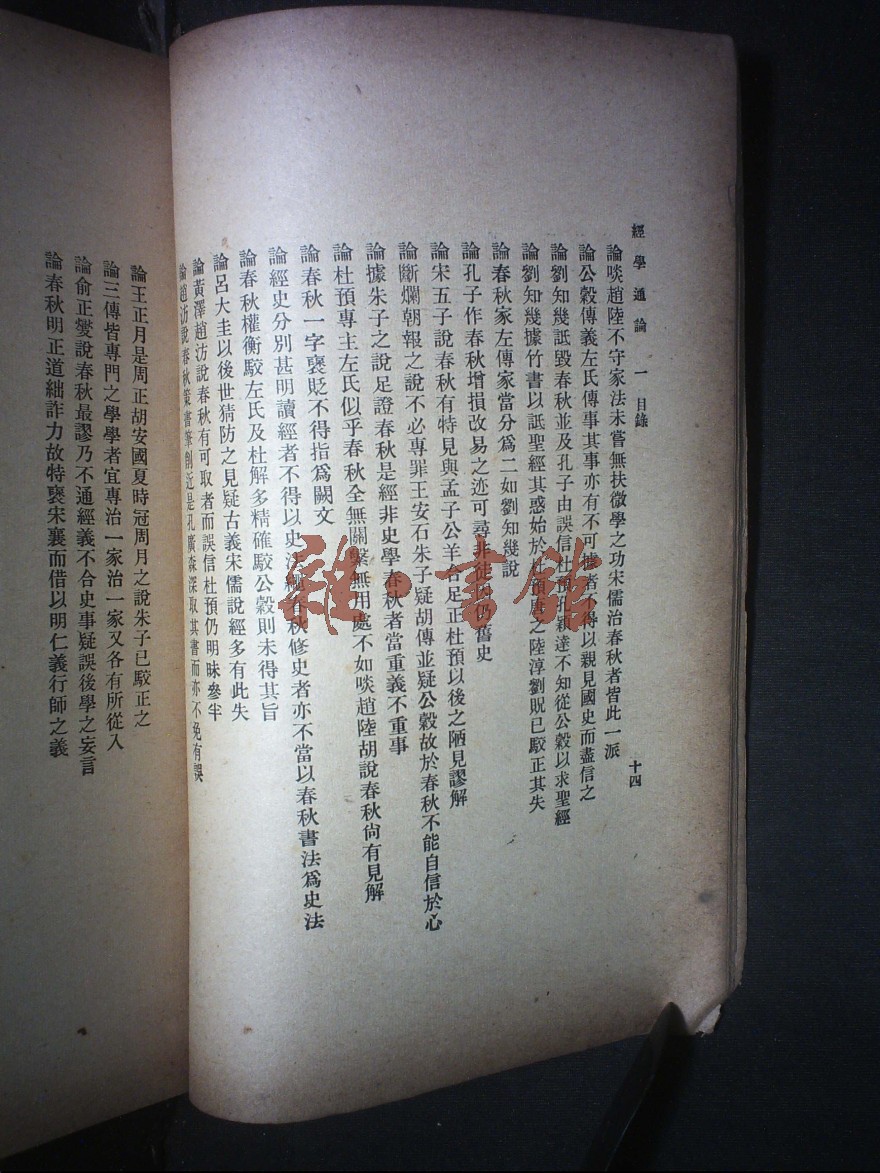 經學通論 一 目錄 十四
論啖趙陸不守家法未嘗無扶微學之功宋儒治春秋者皆此一派
論公穀傳義左氏傳事其事亦有不可據者不得以親見國史而盡信之
論劉知幾詆毀春秋並及孔子由誤信杜預孔穎達不知從公穀以求聖經
論劉知幾據竹書以詆聖經其惑始於杜預唐之陸淳劉貺已駁正其失
論春秋家左傳家當分爲二如劉知幾說
論孔子作春秋增損改易之迹可尋非徒因仍舊史
論宋五子說春秋有特見與孟子公羊合足正杜預以後之陋見謬解
論斷爛朝報之說不必專罪王安石朱子疑胡傳並疑公穀故於春秋不能自信於心
論據朱子之說足證春秋是經非史學春秋者當重義不重事
論杜預專主左氏似乎春秋全無關繫無用處不如啖趙陸胡說春秋尙有見解
論春秋一字褒貶不得指爲闕文
論經史分別甚明讀經者不得以史法繩春秋修史者亦不當以春秋書法爲史法
論春秋權衡駮左氏及杜解多精確駮公穀則未得其旨
論呂大圭以後世猜防之見疑古義宋儒說經多有此失
論黃澤趙汸說春秋有可取者而誤信杜預仍明昧參半
論趙汸說春秋策書筆削近是孔廣森深取其書而亦不免有誤
論王正月是周正胡安國夏時冠周月之說朱子已駮正之
論三傳皆專門之學學者宜專治一家治一家又各有所從入
論俞正燮說春秋最謬乃不通經義不合史事疑誤後學之妄言
論春秋明正道絀詐力故特褒宋襄而借以明仁義行師之義
雜·書館